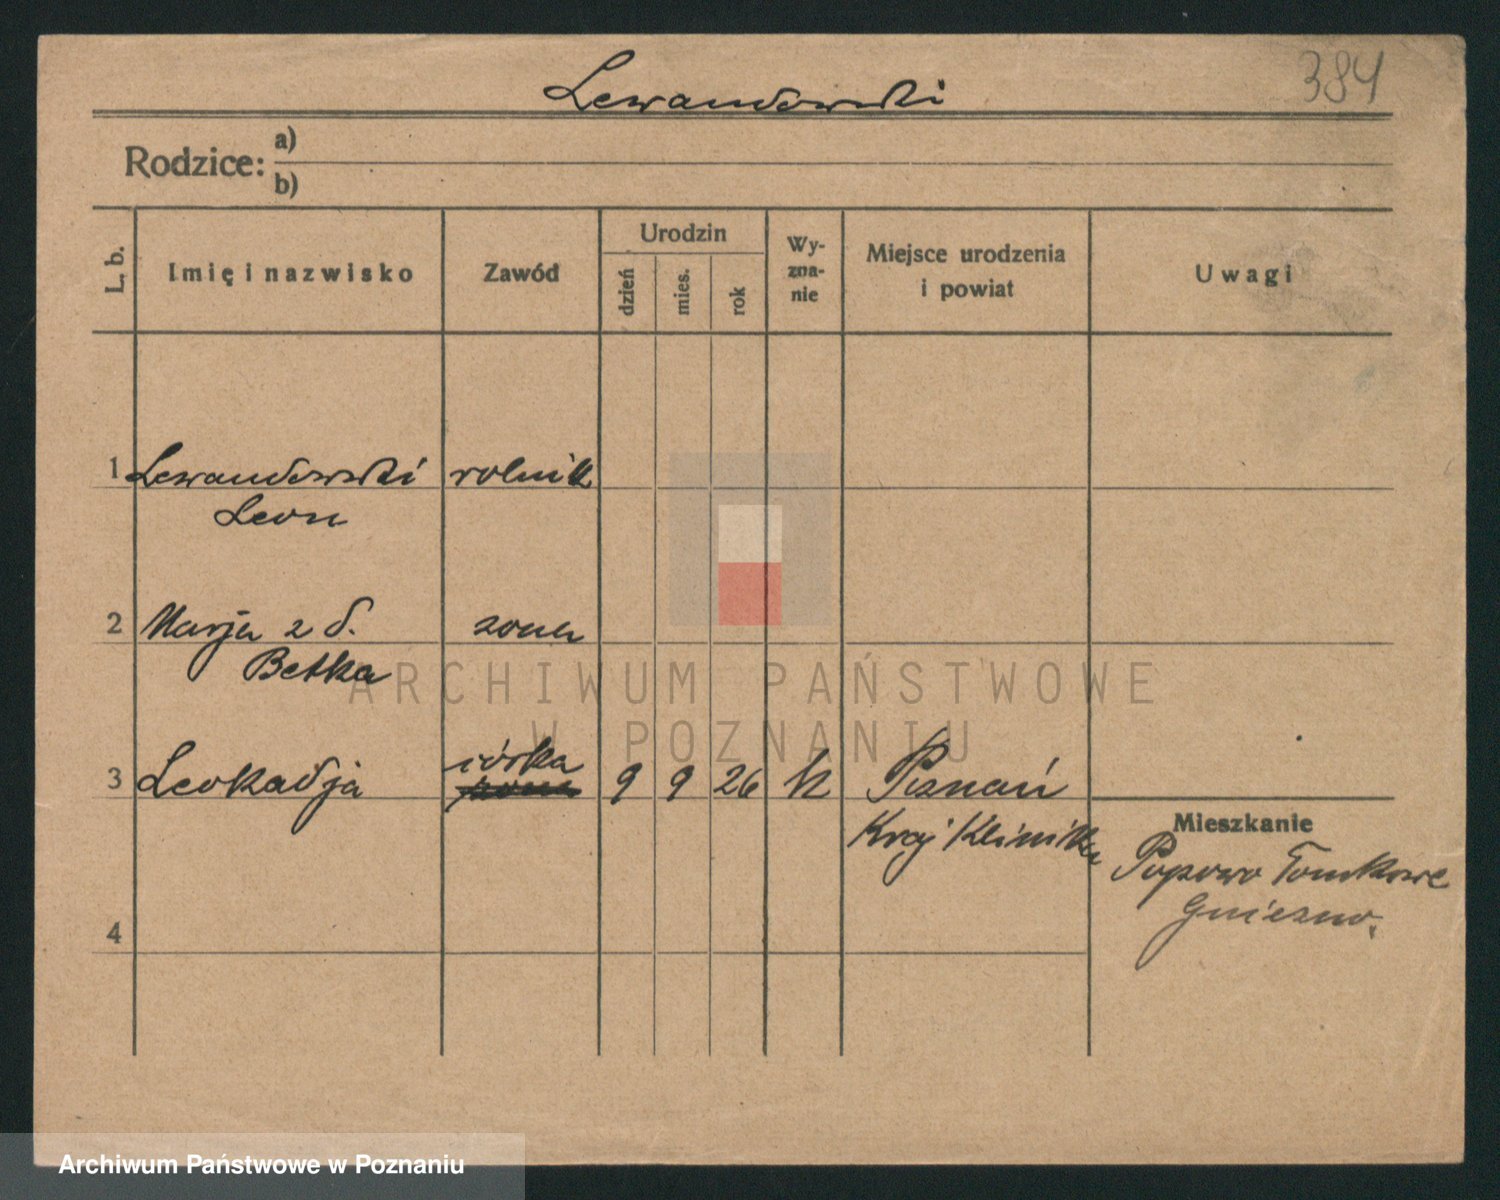 384
Lewandowski
Rodzice: a)
b)
L. b.
Imię i nazwisko
Zawód
Urodzin
dzień
mies.
rok
Wy-
zna-
nie
Miejsce urodzenia
i powiat
Uwagi
1 Lewandowski rolnik
Leon
2 Marja z d. żona
Betka
ARCHIWUM PAŃSTWOWE
W POZNANIU
3 Leokadja córka 9 9 26 k Poznań
Kraj Klinika
Mieszkanie
Popowo Tomkowe
Gniezno.
4
Archiwum Państwowe w Poznaniu